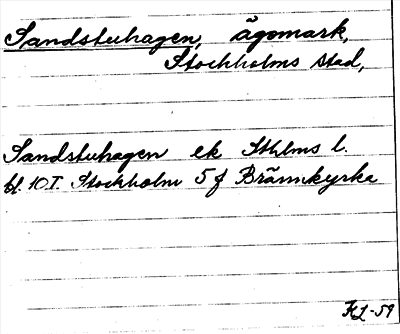 Sandstuhagen, ägomark,
Stockholms stad,
Sandstuhagen ek Sthlms l.
bl. 10 I. Stockholm 5 f Brännkyrka
KL-59